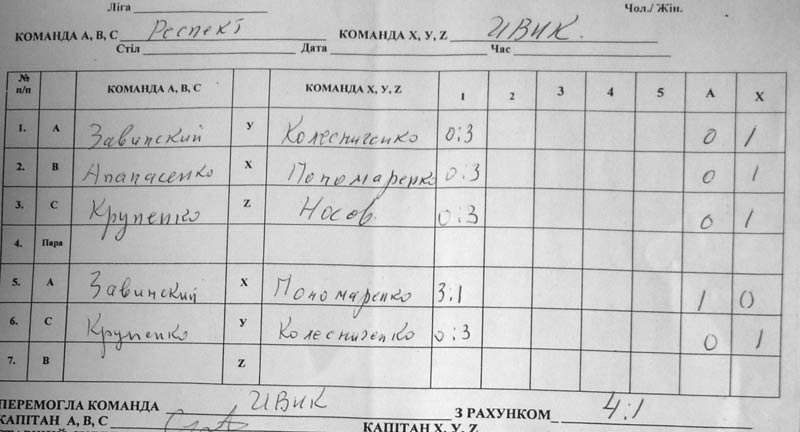 Ліга Чол./ Жін.
КОМАНДА А, В, С Респект КОМАНДА X, У, Z ИВИК.
Стіл Дата Час
№ п/п КОМАНДА А, В, С КОМАНДА X, У, Z 1 2 3 4 5 А X
1. А Завинский У Колесниченко 0:3 0 1
2. В Апанасенко X Пономаренко 0:3 0 1
3. С Крупенко Z Носов 0:3 0 1
4. Пара
5. А Завинский X Пономаренко 3:1 1 0
6. С Крупенко У Колесниченко 0:3 0 1
7. В Z
ПЕРЕМОГЛА КОМАНДА ИВИК З РАХУНКОМ 4:1
КАПІТАН А, В, С КАПІТАН X, У, Z